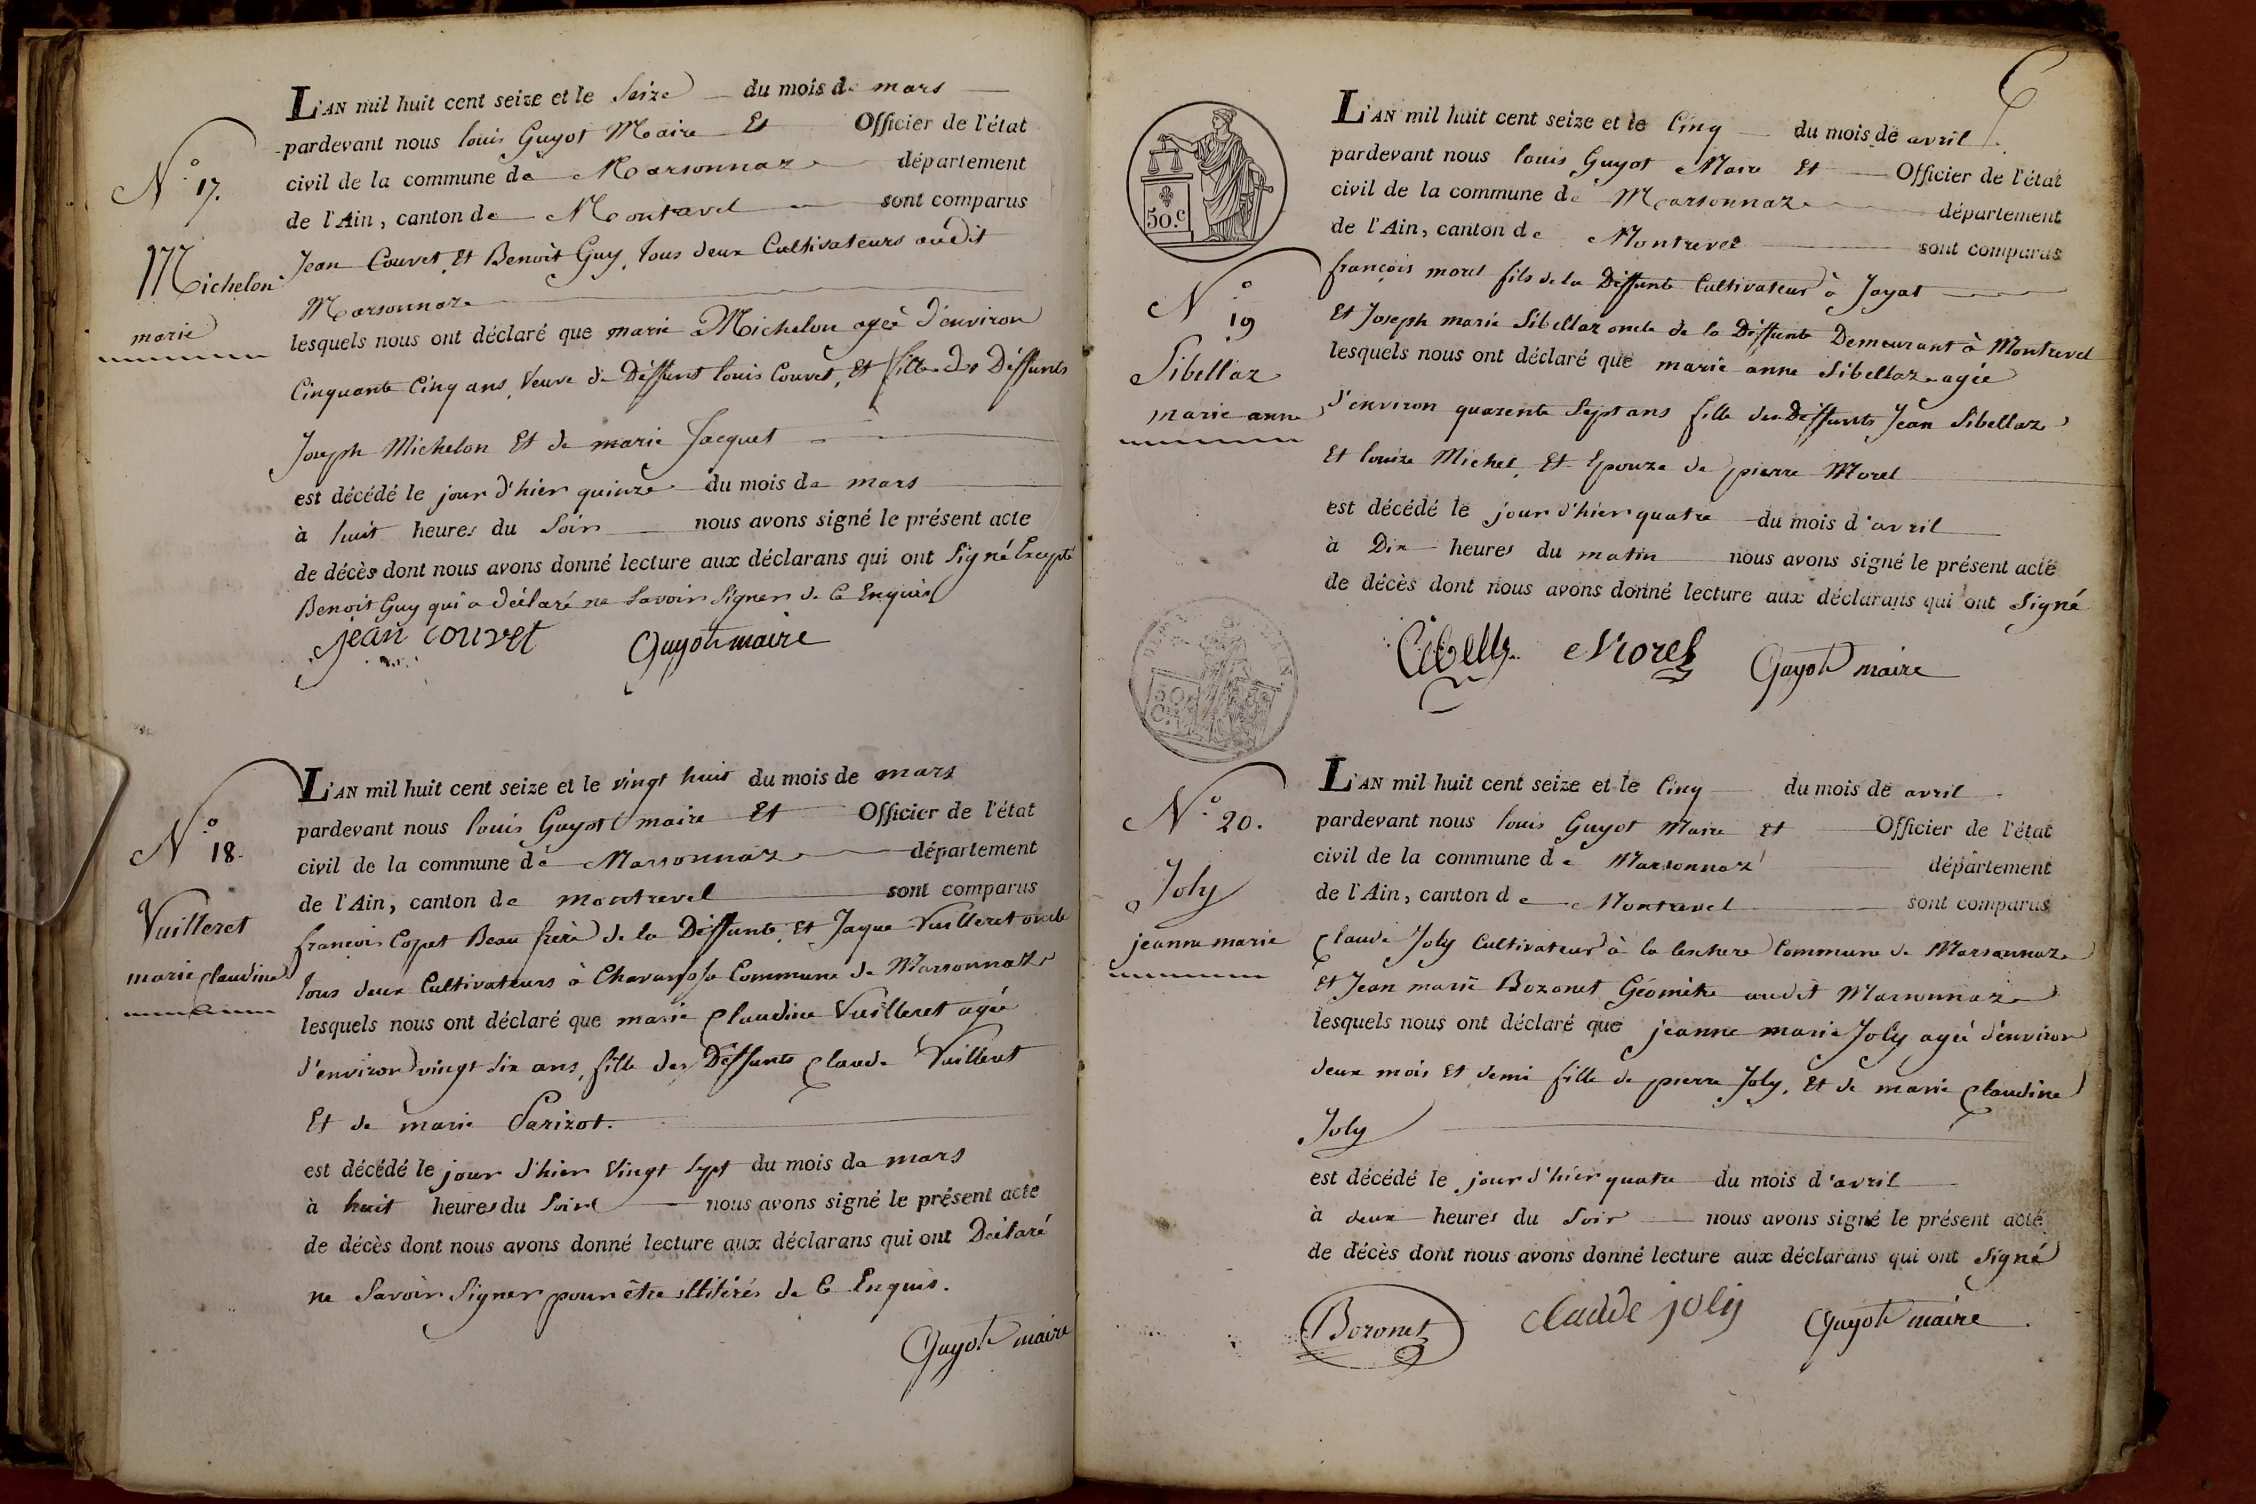 L'AN mil huit cent seize et le Seize du mois de mars
pardevant nous louis Guyot Maire Et Officier de l'état
civil de la commune de Marsonnaz département
de l'Ain, canton de Montravel sont comparus
Jean Couvet, Et Benoit Guy, tous deux Cultivateurs audit
Marsonnaz
lesquels nous ont déclaré que marie Michelon agée d'environ
Cinquante Cinq ans, Veuve de Deffunt louis Couvet, Et fille des Deffunts
Joseph Michelon Et de marie Jacquet
est décédé le jour d'hier quinze du mois de mars
à huit heures du Soir nous avons signé le présent acte
de décès dont nous avons donné lecture aux déclarans qui ont Signé Excepté
Benoit Guy qui a déclaré ne Savoir Signer de Ce Enquis
jean couvet Guyot maire
N° 17.
Michelon
marie
L'AN mil huit cent seize et le vingt huit du mois de mars
pardevant nous louis Guyot maire Et Officier de l'état
civil de la commune de Marsonnaz département
de l'Ain, canton de montrevel sont comparus
françois Copet Beau frère de la Deffunte, Et Jaque Vuilleret oncle
tous deux Cultivateurs à Commune de Marsonnaz
lesquels nous ont déclaré que marie Claudine Vuilleret agée
d'environ vingt Six ans, fille des Deffunts Claude Vuilleret
Et de marie Parizot.
est décédé le jour d'hier Vingt Sept du mois de mars
à huit heures du Soir nous avons signé le présent acte
de décès dont nous avons donné lecture aux déclarans qui ont Déclaré
ne Savoir Signer pour être illitérés de Ce Enquis.
Guyot maire
N° 18.
Vuilleret
marie Claudine
50.c
L'AN mil huit cent seize et le Cinq du mois de avril
pardevant nous louis Guyot Maire Et Officier de l'état
civil de la commune de Marsonnaz département
de l'Ain, canton de Montrevel sont comparus
françois morel fils de la Deffunte Cultivateur à Jayat
Et Joseph marie Sibellaz oncle de la Deffunte Demeurant à Montrevel
lesquels nous ont déclaré que marie anne Sibellaz agée
d'environ quarente Sept ans fille des Deffunts Jean Sibellaz
Et louize Michel, Et Epouze de pierre Morel
est décédé le jour d'hier quatre du mois d'avril
à Dix heures du matin nous avons signé le présent acte
de décès dont nous avons donné lecture aux déclarans qui ont Signé
Morel Guyot maire
N° 19
Sibellaz
marie anne
L'AN mil huit cent seize et le Cinq du mois de avril
pardevant nous louis Guyot Maire Et Officier de l'état
civil de la commune de Marsonnaz département
de l'Ain, canton de Montravel sont comparus
Claude Joly Cultivateur à la Commune de Marsonnaz
Et Jean marie Bozonet Géomètre audit Marsonnaz
lesquels nous ont déclaré que jeanne marie Joly agée d'environ
deux mois Et demi fille de pierre Joly, Et de marie Claudine
Joly
est décédé le jour d'hier quatre du mois d'avril
à deux heures du Soir nous avons signé le présent acte
de décès dont nous avons donné lecture aux déclarans qui ont Signé
Bozonet claude joly Guyot maire
N° 20.
Joly
jeanne marie